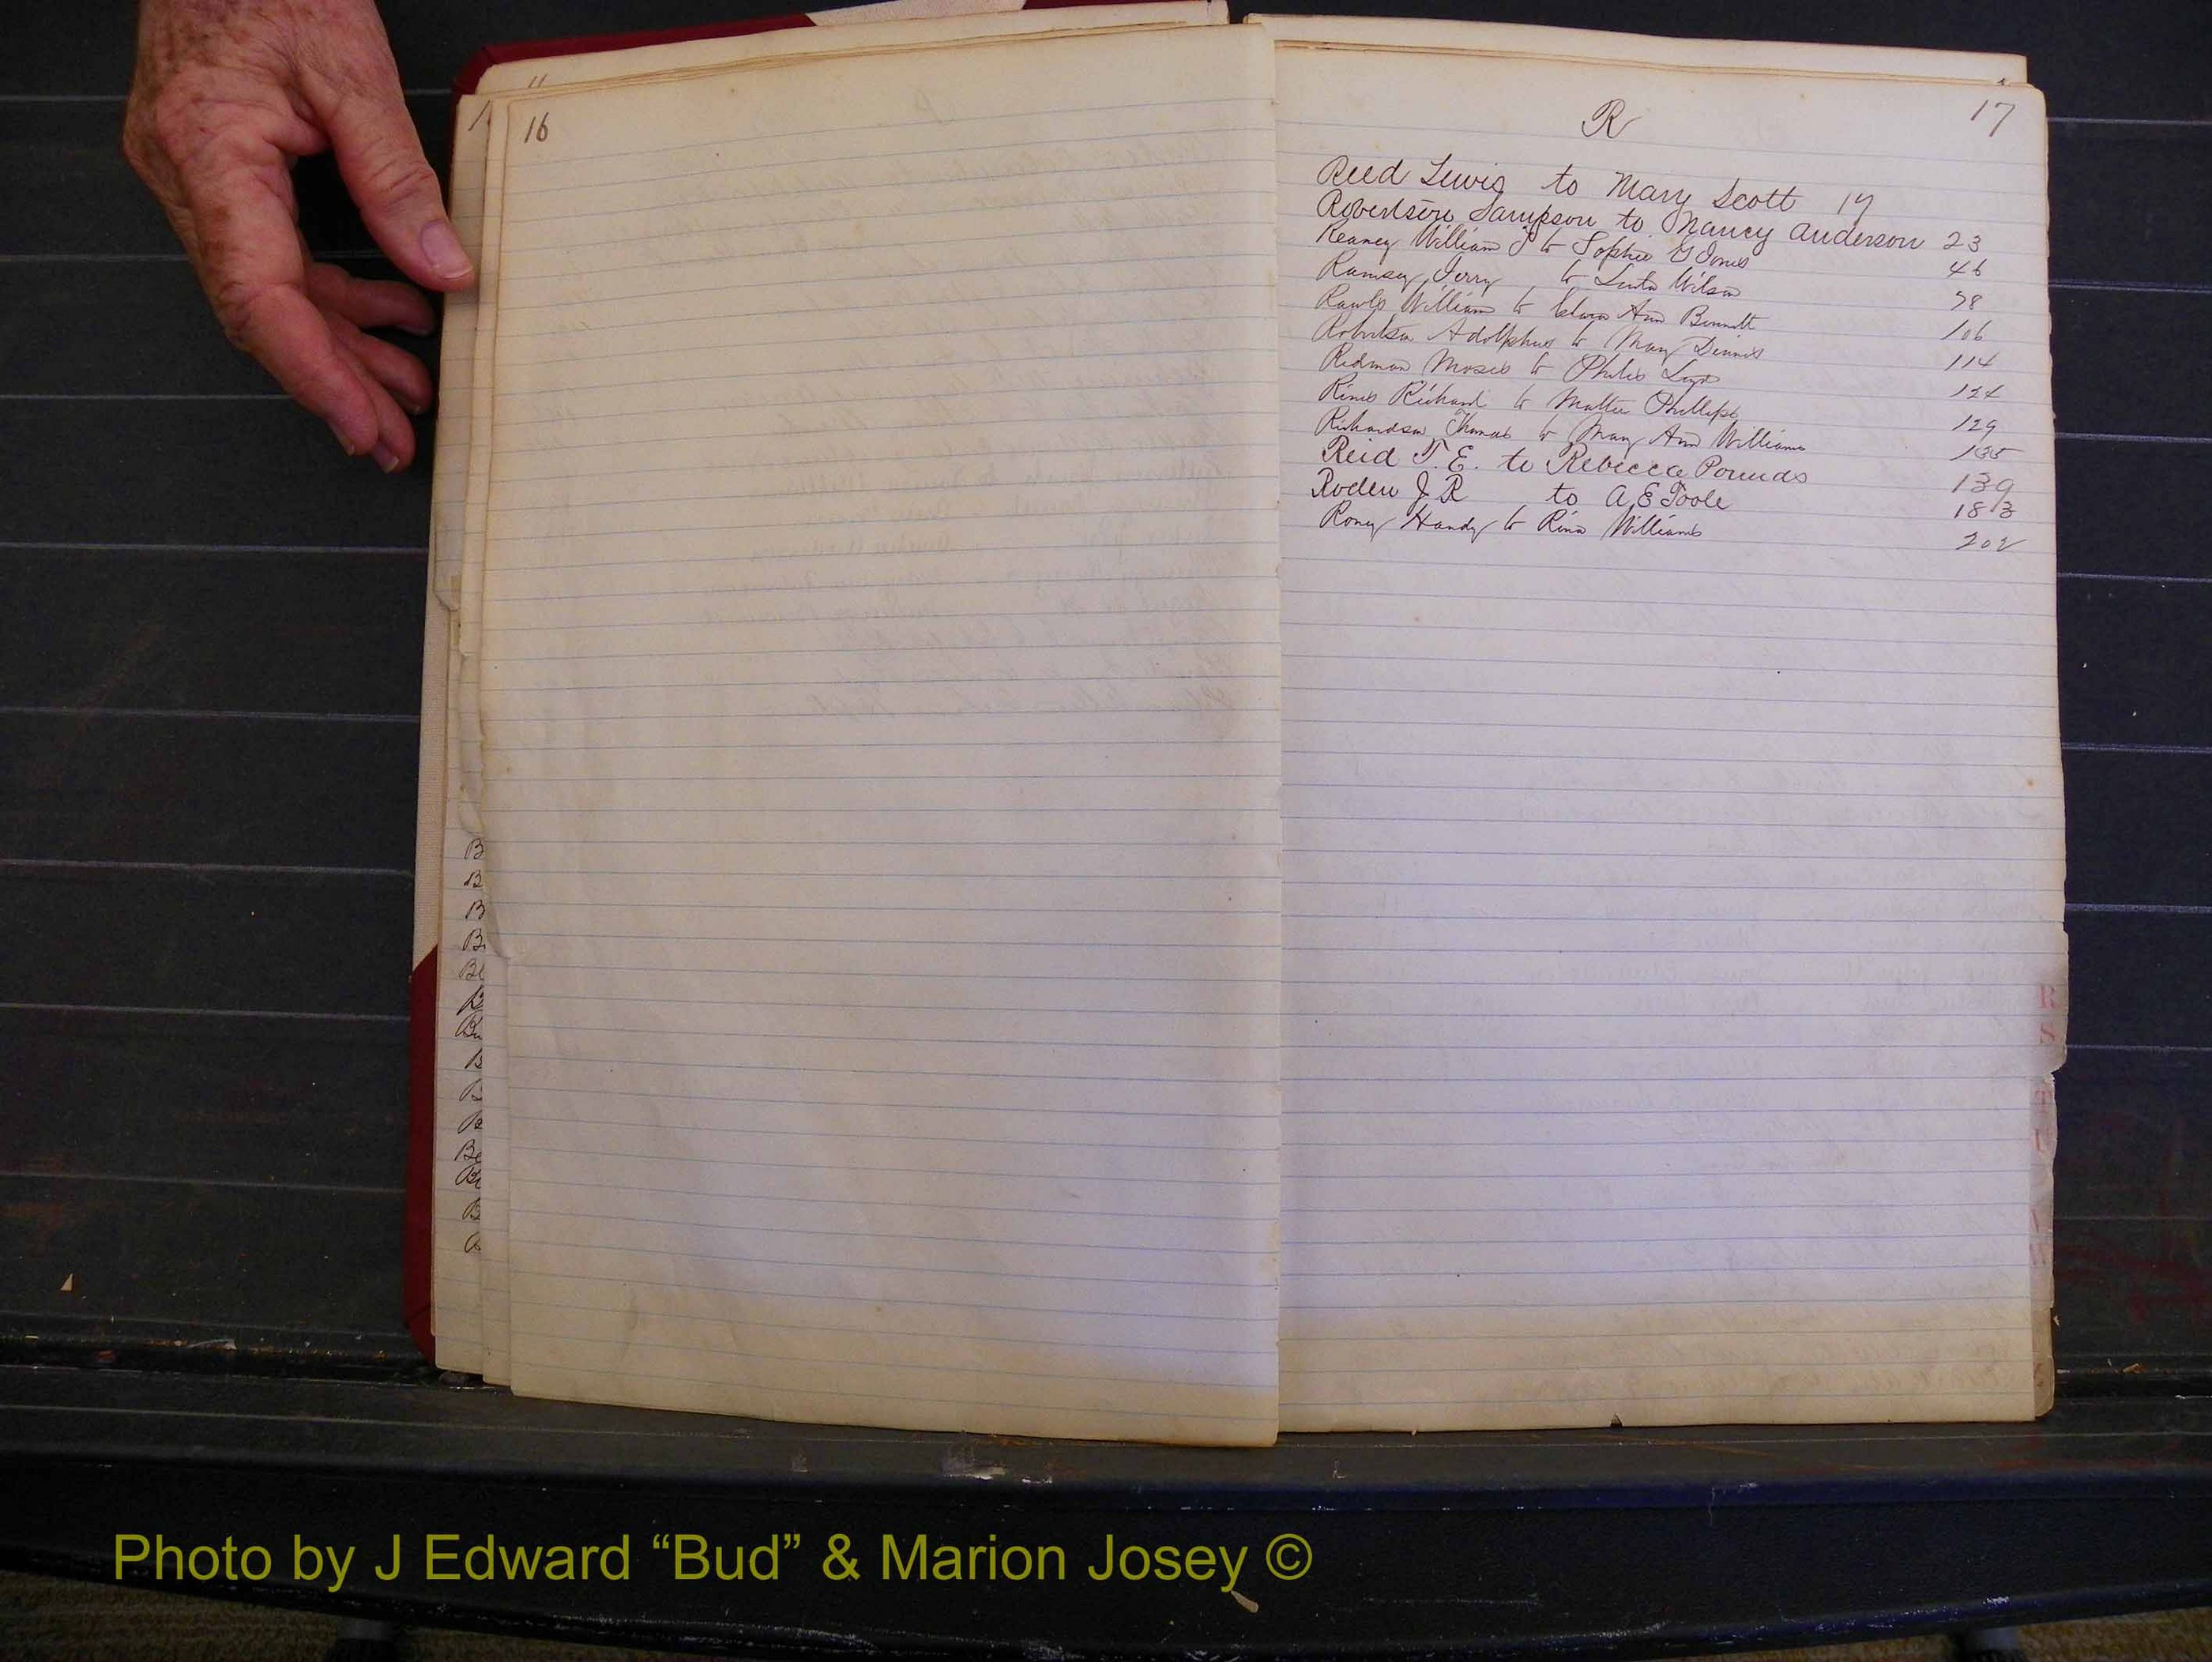 11
16
R
17
Reed Lewis to Mary Scott 19
Robertson Sampson to Nancy Anderson 23
Reaney William J to Sophie G Jones 46
Ramsey Jerry to Wilson 98
Rawls William to Ann Bennett 106
Robertson Adolphus to Mary Dennis 114
Redman Moses to Philis 124
Rines Richard to Mattie Phillips 129
Richardson Thomas to Mary Ann Williams 135
Reid T. E. to Rebecca Pounds 139
Roden J R to A E Toole 183
Roney Handy to Rina Williams 202
B
B
B
B
Be
Bu
B
B
B
Be
Be
B
R
S
T
U
W
Photo by J Edward “Bud” & Marion Josey ©